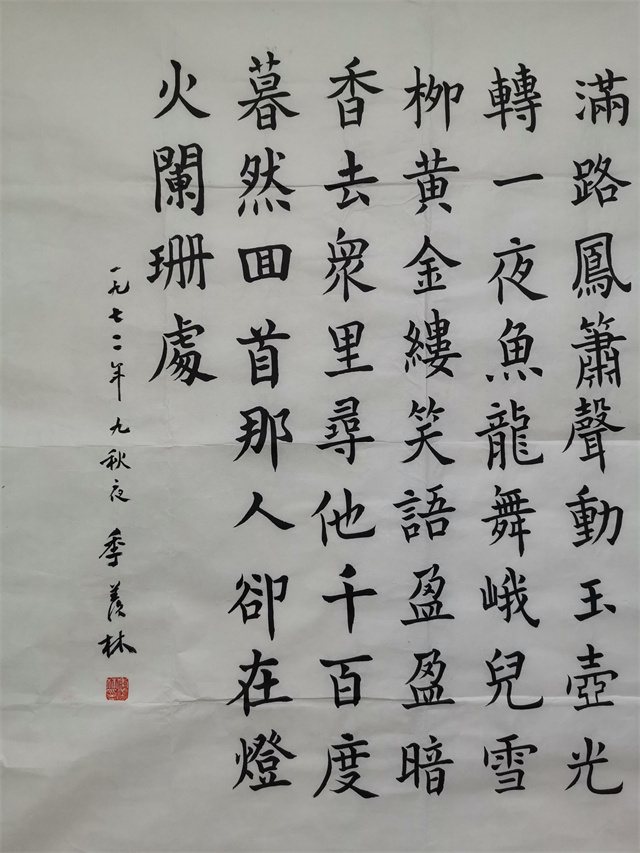 滿路鳳簫聲動玉壺光
轉一夜魚龍舞峨兒雪
柳黃金縷笑語盈盈暗
香去衆里尋他千百度
暮然回首那人卻在燈
火闌珊處
一九七二年九秋夜 季羨林